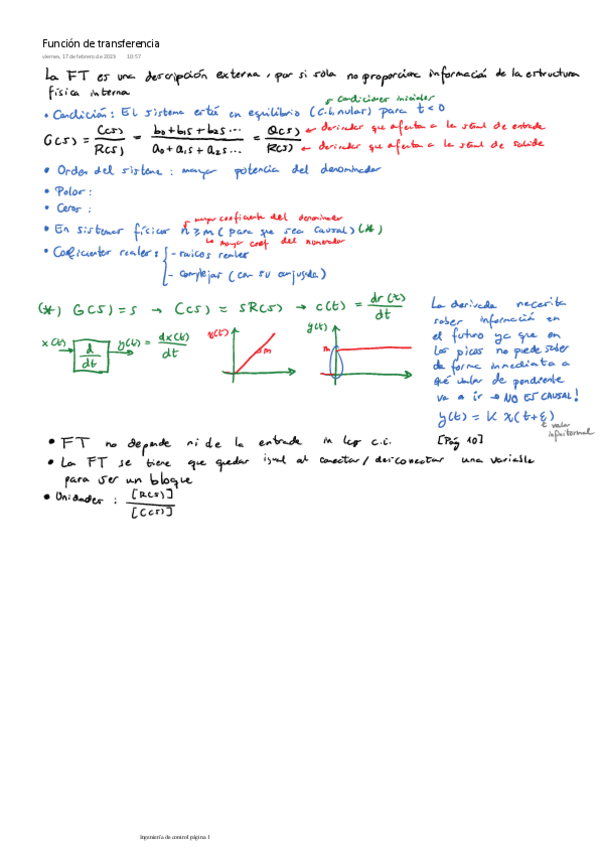 Función de transferencia
viernes, 17 de febrero de 2023 10:57
La FT es una descripción externa, por si sola no proporciona información de la estructura
física interna
condiciones iniciales
• Condición: El sistema esté en equilibrio (C.I. nulas) para t<0
G(s) = C(s)/R(s) = b₀+b₁s+b₂s.../a₀+a₁s+a₂s... = Q(s)/R(s) ← derivadas que afectan a la señal de entrada
← derivadas que afectan a la señal de salida
• Orden del sistema: mayor potencia del denominador
• Polos:
• Ceros:
mayor coeficiente del denominador
• En sistemas físicos n≥m (para que sea causal) (*)
mayor coef. del numerador
• Coeficientes reales: - raices reales
- complejas (con su conjugada)
(*) G(s)=s → C(s) = sR(s) → c(t) = dr(t)/dt
x(t) d/dt y(t) = dx(t)/dt
x(t) m
y(t) m
La derivada necesita
saber información en
el futuro ya que en
los picos no puede saber
de forma inmediata a
qué valor de pendiente
va a ir → NO ES CAUSAL!
y(t) = K x(t+ε)
valor
infinitesimal
• FT no depende ni de la entrada ni las c.i. [Pág 10]
• La FT se tiene que quedar igual al conectar/desconectar una variable
para ser un bloque
• Unidades: [R(s)]/[C(s)]
Ingeniería de control página 1